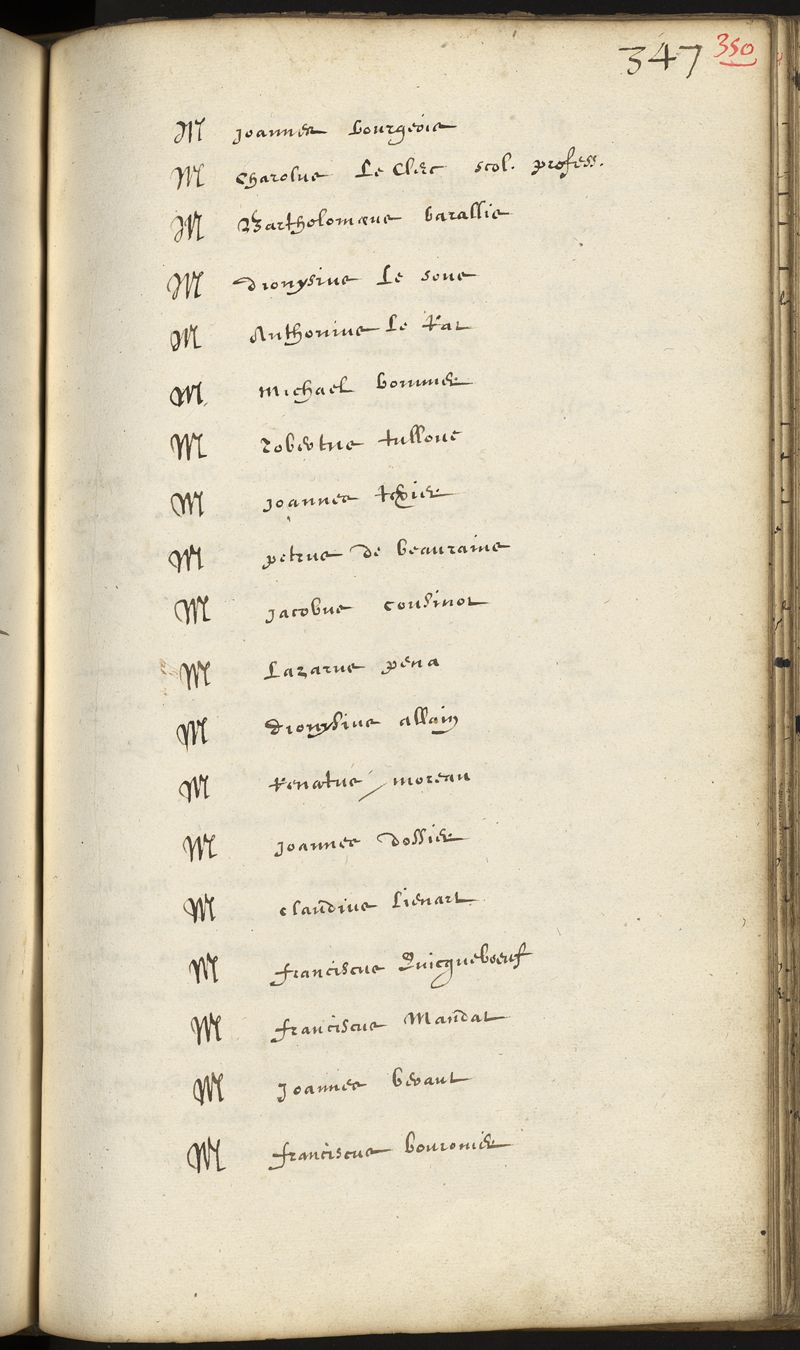 347 350
M Joannes bourgeois
M Charolus Le Clerc scol. profess.
M Bartholomæus barallis
M dionysius Le soue
M Anthonius Le Rat
M Michael bommier
M robertus tulloue
M Joannes texier
M petrus de beaurains
M Jacobus cousinot
M Lazarus pena
M dionysius allain
M Renatus moreau
M Joannes dossier
M claudius Lienart
M franciscus Quicqueboeuf
M franciscus Mandat
M Joannes beraut
M franciscus bouronier